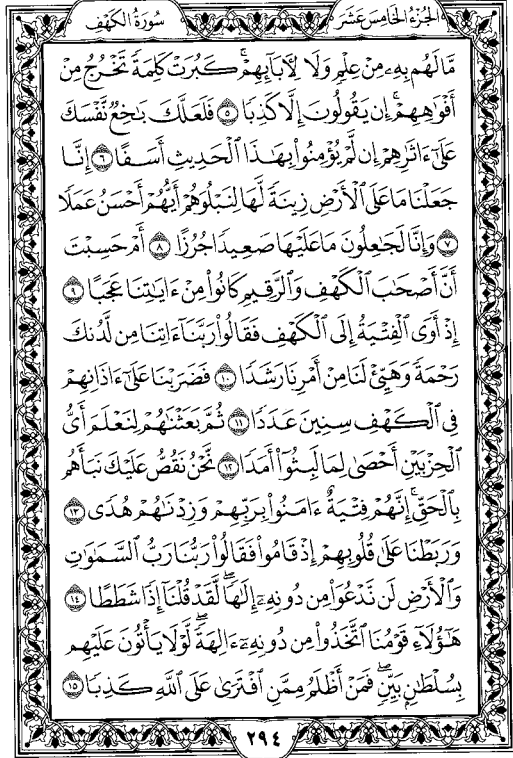 الجزء الخامس عشر
سورة الكهف
مَّا لَهُم بِهِۦ مِنْ عِلْمٍ وَلَا لِأَبَآئِهِمْ ۚ كَبُرَتْ كَلِمَةً تَخْرُجُ مِنْ
أَفْوَٰهِهِمْ ۚ إِن يَقُولُونَ إِلَّا كَذِبًا ۝٥ فَلَعَلَّكَ بَٰخِعٌ نَّفْسَكَ
عَلَىٰٓ ءَاثَٰرِهِمْ إِن لَّمْ يُؤْمِنُوا۟ بِهَٰذَا ٱلْحَدِيثِ أَسَفًا ۝٦ إِنَّا
جَعَلْنَا مَا عَلَى ٱلْأَرْضِ زِينَةً لَّهَا لِنَبْلُوَهُمْ أَيُّهُمْ أَحْسَنُ عَمَلًا
۝٧ وَإِنَّا لَجَٰعِلُونَ مَا عَلَيْهَا صَعِيدًا جُرُزًا ۝٨ أَمْ حَسِبْتَ
أَنَّ أَصْحَٰبَ ٱلْكَهْفِ وَٱلرَّقِيمِ كَانُوا۟ مِنْ ءَايَٰتِنَا عَجَبًا ۝٩
إِذْ أَوَى ٱلْفِتْيَةُ إِلَى ٱلْكَهْفِ فَقَالُوا۟ رَبَّنَآ ءَاتِنَا مِن لَّدُنكَ
رَحْمَةً وَهَيِّئْ لَنَا مِنْ أَمْرِنَا رَشَدًا ۝١٠ فَضَرَبْنَا عَلَىٰٓ ءَاذَانِهِمْ
فِى ٱلْكَهْفِ سِنِينَ عَدَدًا ۝١١ ثُمَّ بَعَثْنَٰهُمْ لِنَعْلَمَ أَىُّ
ٱلْحِزْبَيْنِ أَحْصَىٰ لِمَا لَبِثُوٓا۟ أَمَدًا ۝١٢ نَّحْنُ نَقُصُّ عَلَيْكَ نَبَأَهُم
بِٱلْحَقِّ ۚ إِنَّهُمْ فِتْيَةٌ ءَامَنُوا۟ بِرَبِّهِمْ وَزِدْنَٰهُمْ هُدًى ۝١٣
وَرَبَطْنَا عَلَىٰ قُلُوبِهِمْ إِذْ قَامُوا۟ فَقَالُوا۟ رَبُّنَا رَبُّ ٱلسَّمَٰوَٰتِ
وَٱلْأَرْضِ لَن نَّدْعُوَا۟ مِن دُونِهِۦٓ إِلَٰهًا ۖ لَّقَدْ قُلْنَآ إِذًا شَطَطًا ۝١٤
هَٰٓؤُلَآءِ قَوْمُنَا ٱتَّخَذُوا۟ مِن دُونِهِۦٓ ءَالِهَةً ۖ لَّوْلَا يَأْتُونَ عَلَيْهِم
بِسُلْطَٰنٍۭ بَيِّنٍ ۖ فَمَنْ أَظْلَمُ مِمَّنِ ٱفْتَرَىٰ عَلَى ٱللَّهِ كَذِبًا ۝١٥
٢٩٤